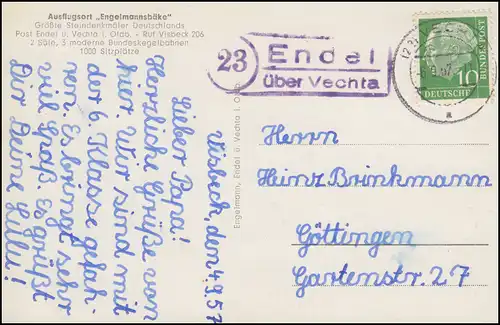 Ausflugsort „Engelmannsbäke"
Größte Steindenkmäler Deutschlands
Post Endel ü. Vechta i. Oldb. - Ruf Visbek 206
2 Säle, 3 moderne Bundeskegelbahnen
1000 Sitzplätze
Visbeck, den 4.9.57
Lieber Papa!
Herzliche Grüße von
hier. Wir sind mit
der 6. Klasse gefah-
ren. Es bringt sehr
viel Spaß. Es grüßt
Dir Deine Lulu!
Engelmann, Endel ü. Vechta i. O.
23
Endel
über Vechta
10
DEUTSCHE
BUNDESPOST
a
Herrn
Heinz Brinkmann
Göttingen
Gartenstr. 27